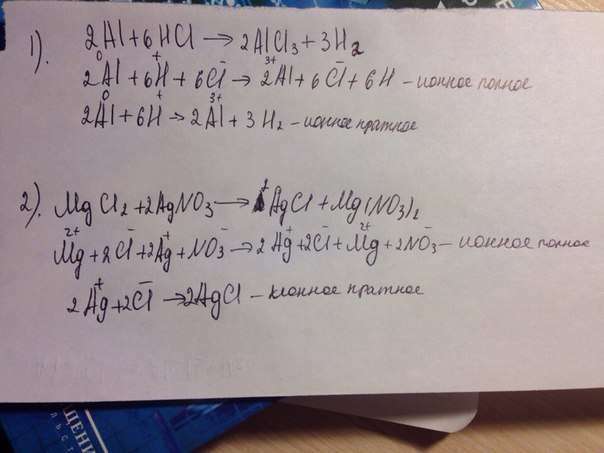 1). 2Al + 6HCl → 2AlCl₃ + 3H₂
2Al⁰ + 6H⁺ + 6Cl⁻ → 2Al³⁺ + 6Cl⁻ + 6H – ионное полное
2Al⁰ + 6H⁺ → 2Al³⁺ + 3H₂ – ионное кратное
2). MgCl₂ + 2AgNO₃ → AgCl + Mg(NO₃)₂
Mg²⁺ + 2Cl⁻ + 2Ag⁺ + NO₃⁻ → 2Ag⁺ + 2Cl⁻ + Mg²⁺ + 2NO₃⁻ – ионное полное
2Ag⁺ + 2Cl⁻ → 2AgCl – ионное кратное